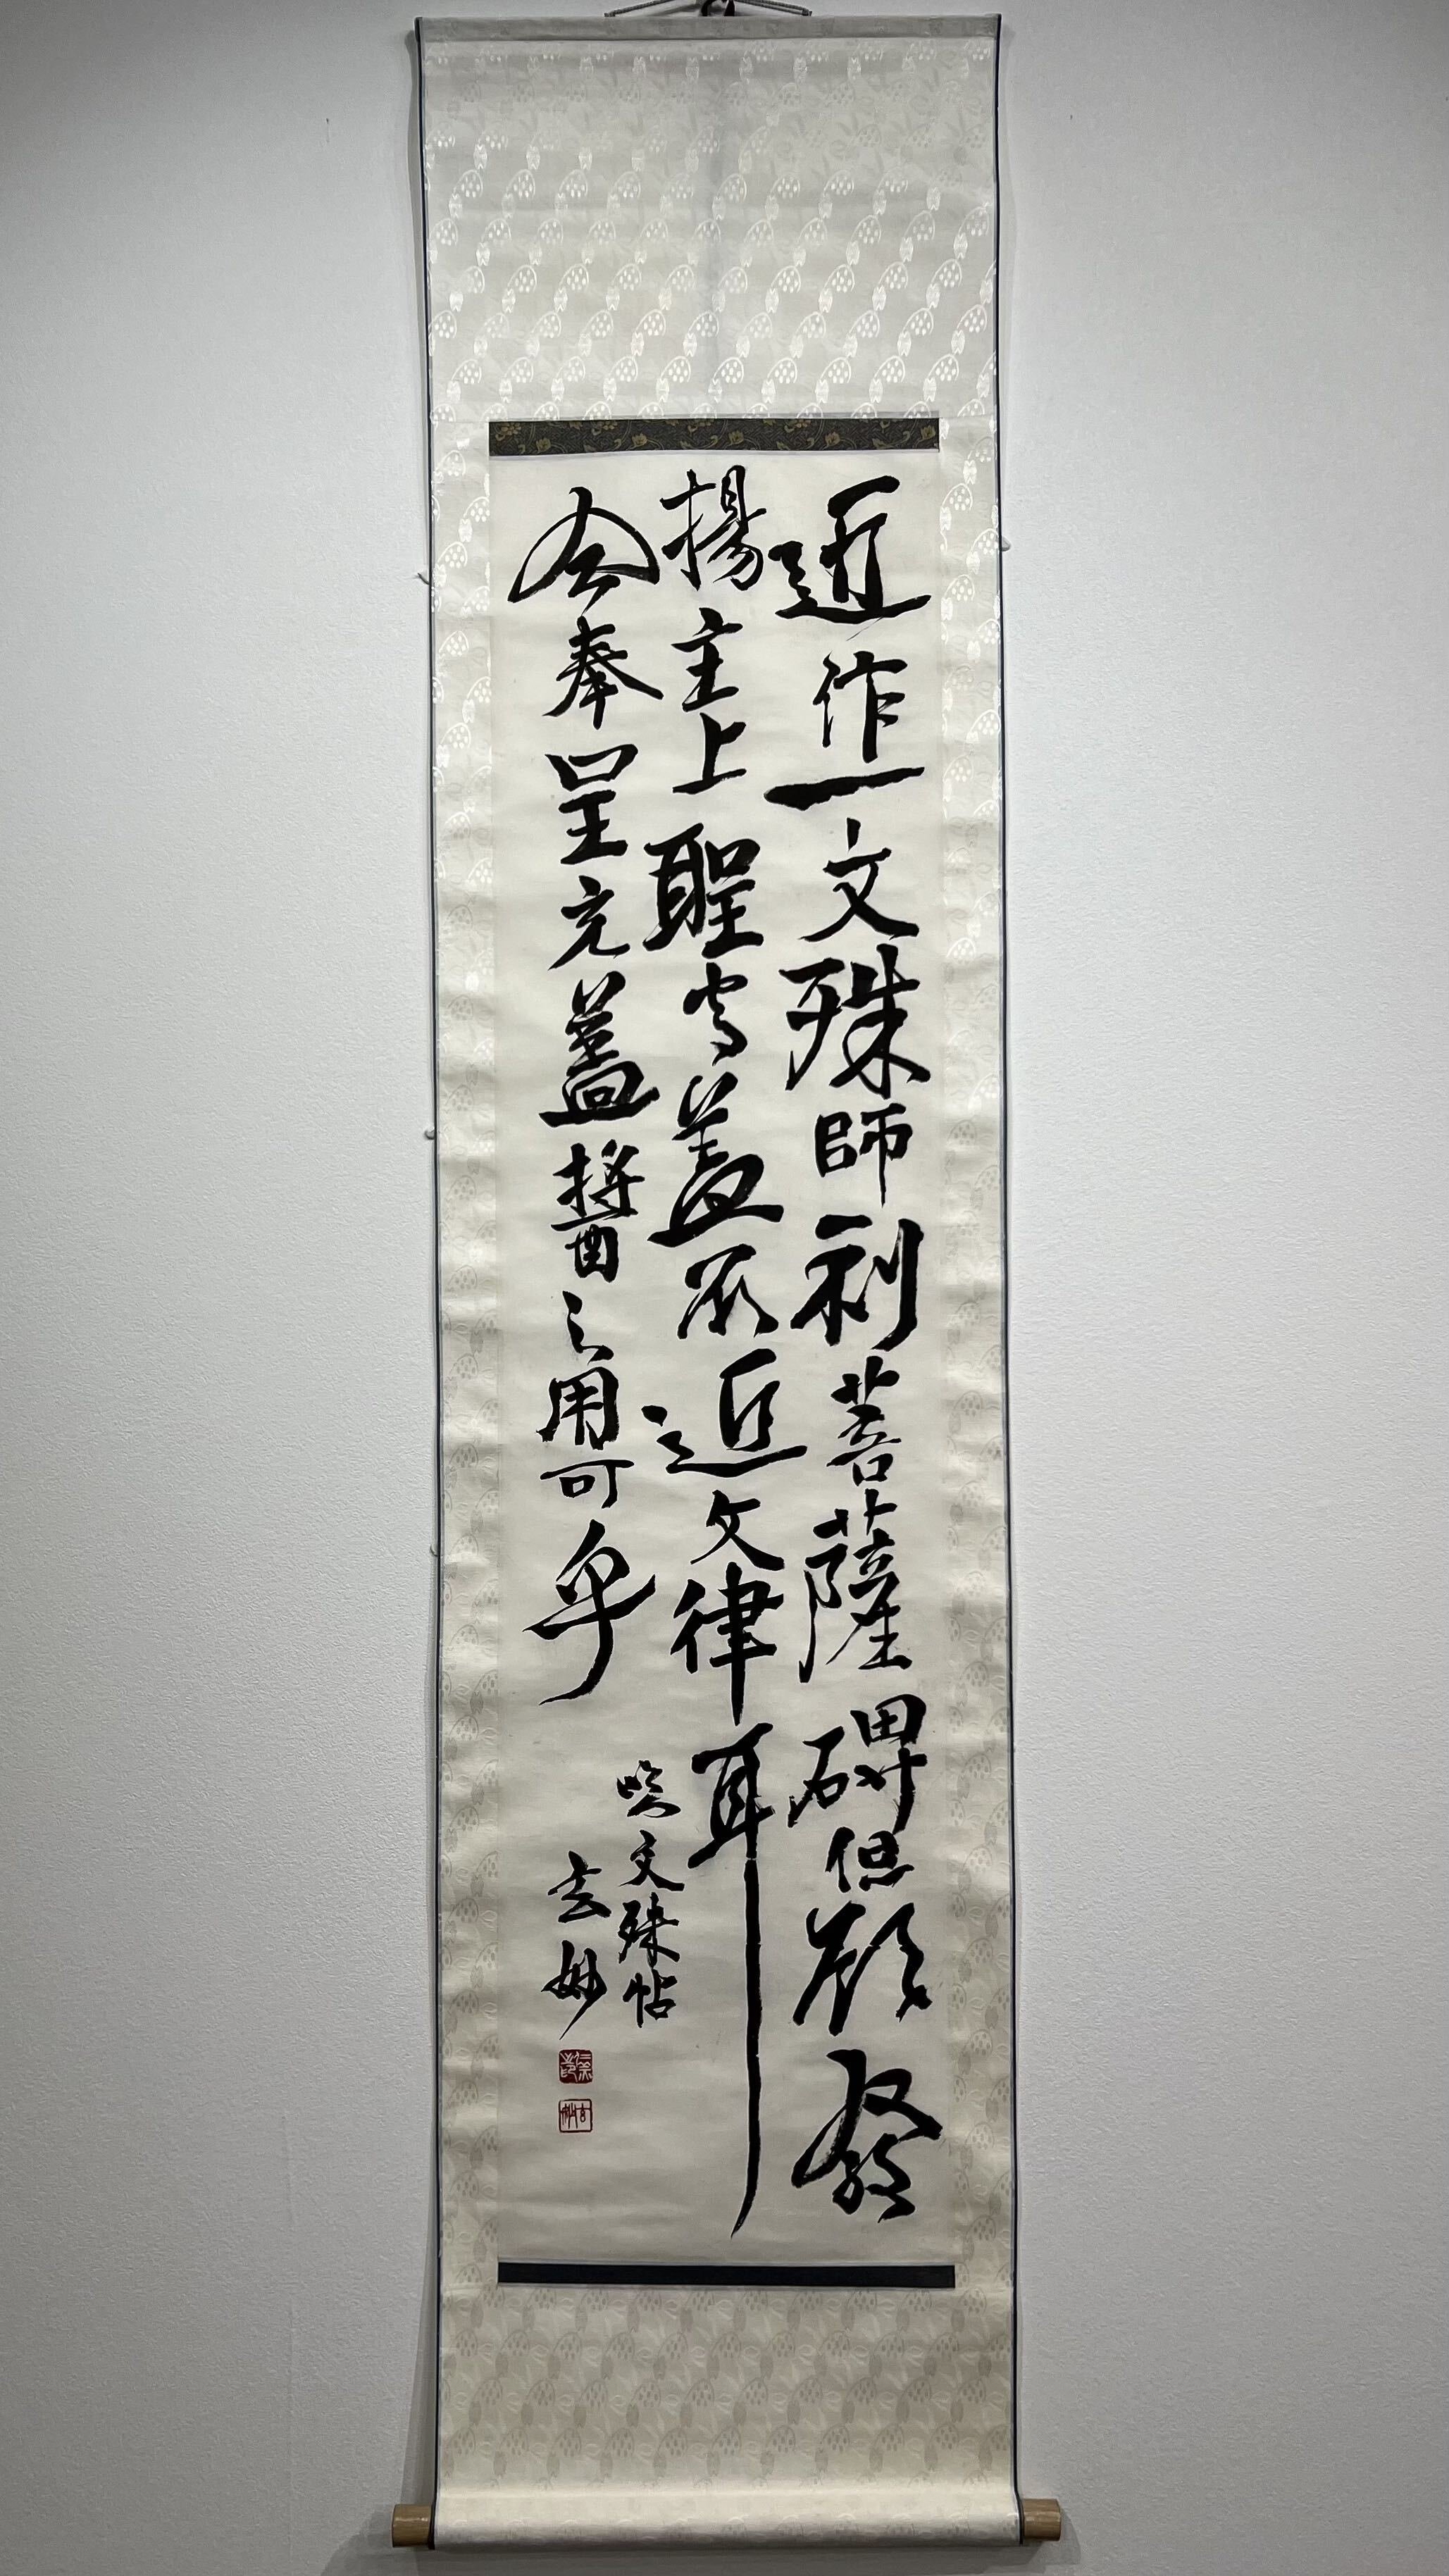 近作一文殊師利菩薩碑但欲發
揚主上聖蓋不近文律耳
今奉呈充蓋醬之用可乎
臨文殊帖
玄妙
玄妙